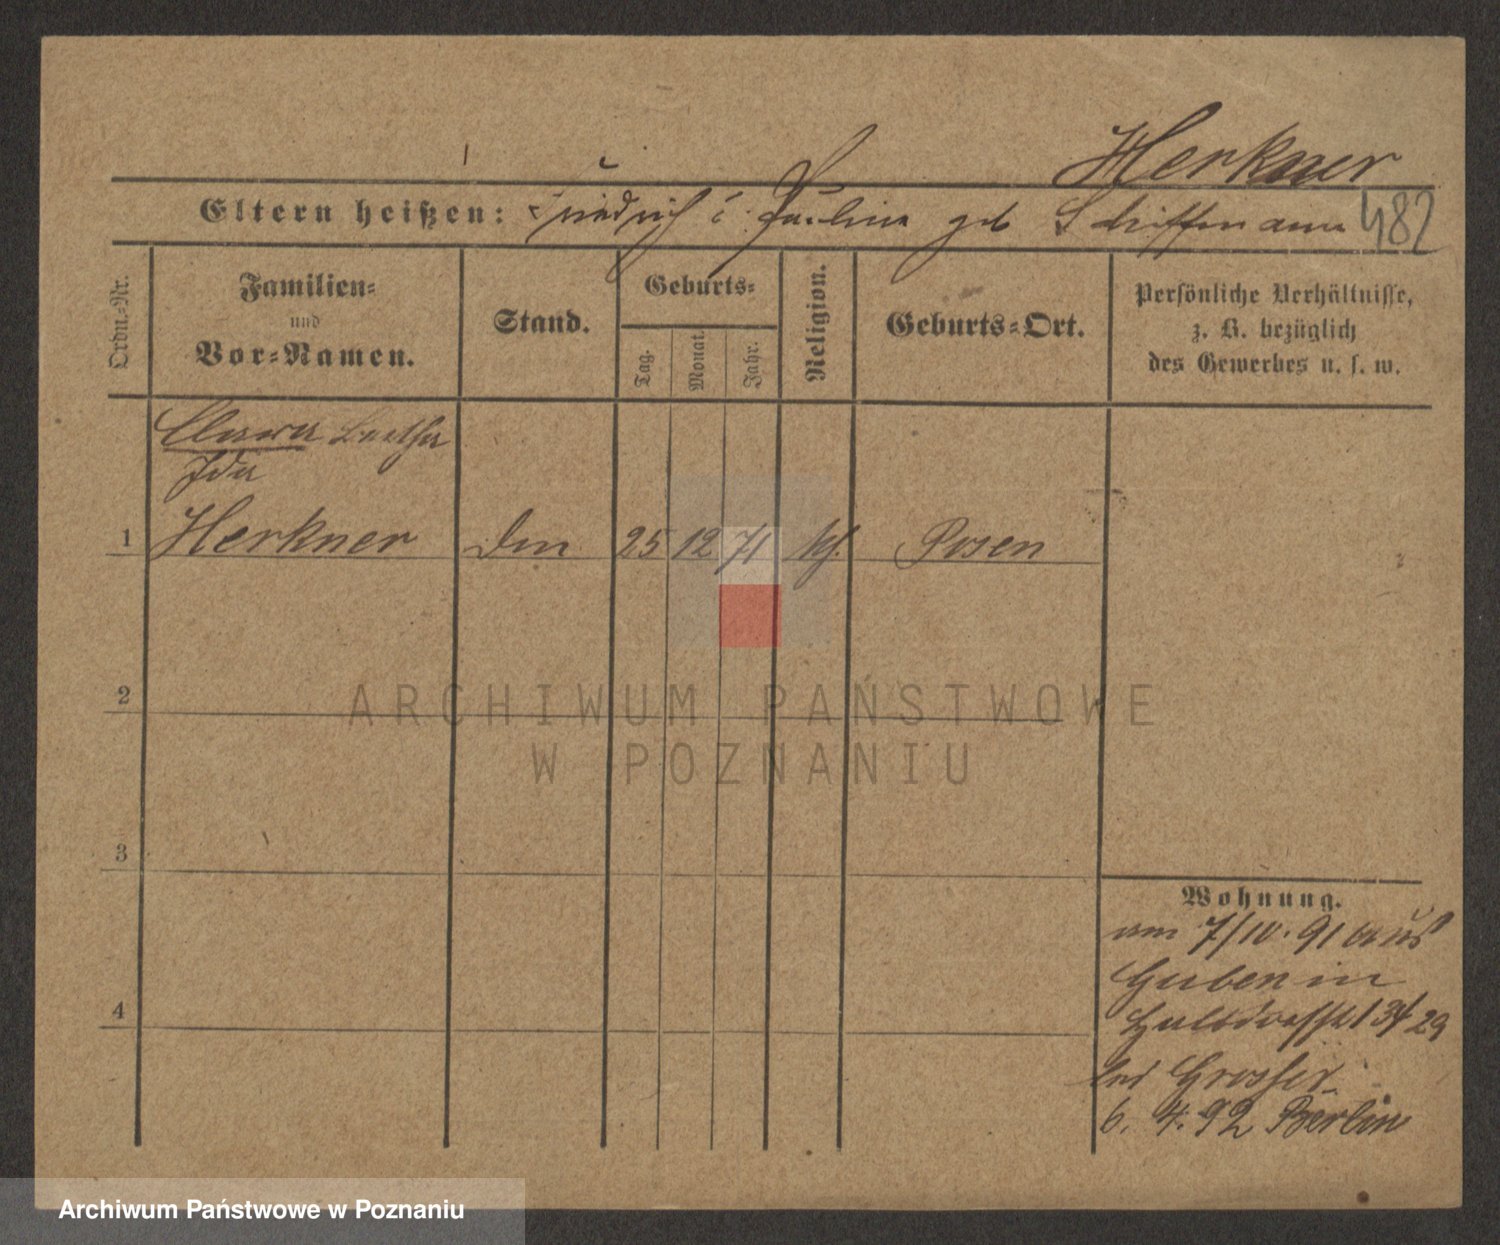 Herkner
Eltern heißen: Friedrich u Pauline geb Schiffmann 482
Ordn.-Nr.
Familien-
und
Vor-Namen.
Stand.
Geburts-
Tag.
Monat.
Jahr.
Religion.
Geburts-Ort.
Persönliche Verhältnisse,
z. B. bezüglich
des Gewerbes u. s. w.
Clara Bertha
Ida
1 Herkner 25 12 71 Posen
2
ARCHIWUM PAŃSTWOWE
W POZNANIU
3
4
Wohnung.
am 7/10. 91 aus
Guben in
29
bei Grosser
6. 4. 92 Berlin
Archiwum Państwowe w Poznaniu